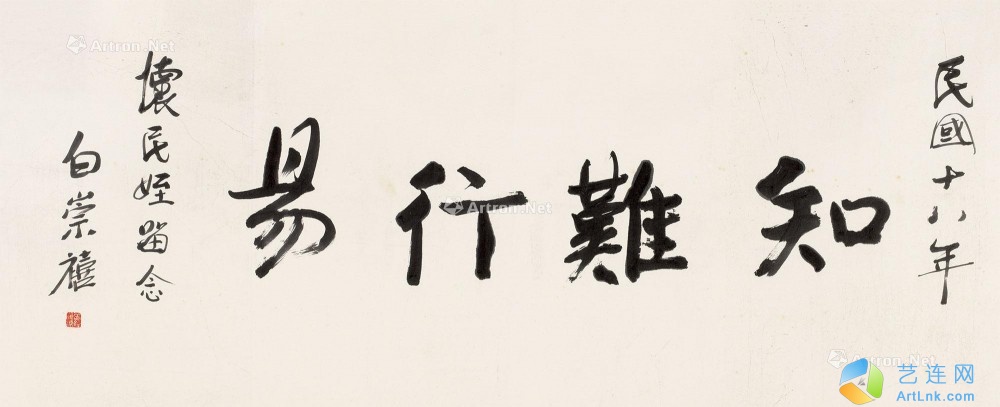 民國十八年
知難行易
懷民姪留念
白崇禧
Artron.Net
Artron.Net
Artron.Net
Artron.Net
艺连网
ArtLnk.com